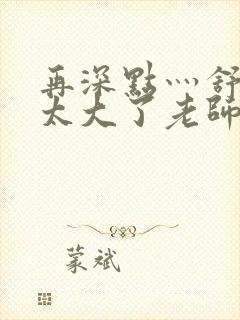 再深點灬舒
太大了老師
蒙斌